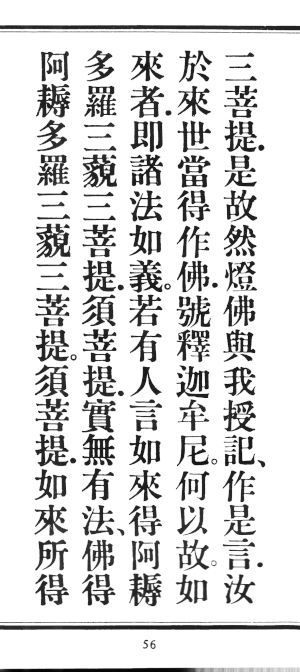 三菩提.是故然燈佛與我授記、作是言.汝
於來世當得作佛.號釋迦牟尼。何以故。如
來者.即諸法如義。若有人言如來得阿耨
多羅三藐三菩提.須菩提.實無有法、佛得
阿耨多羅三藐三菩提。須菩提.如來所得
56